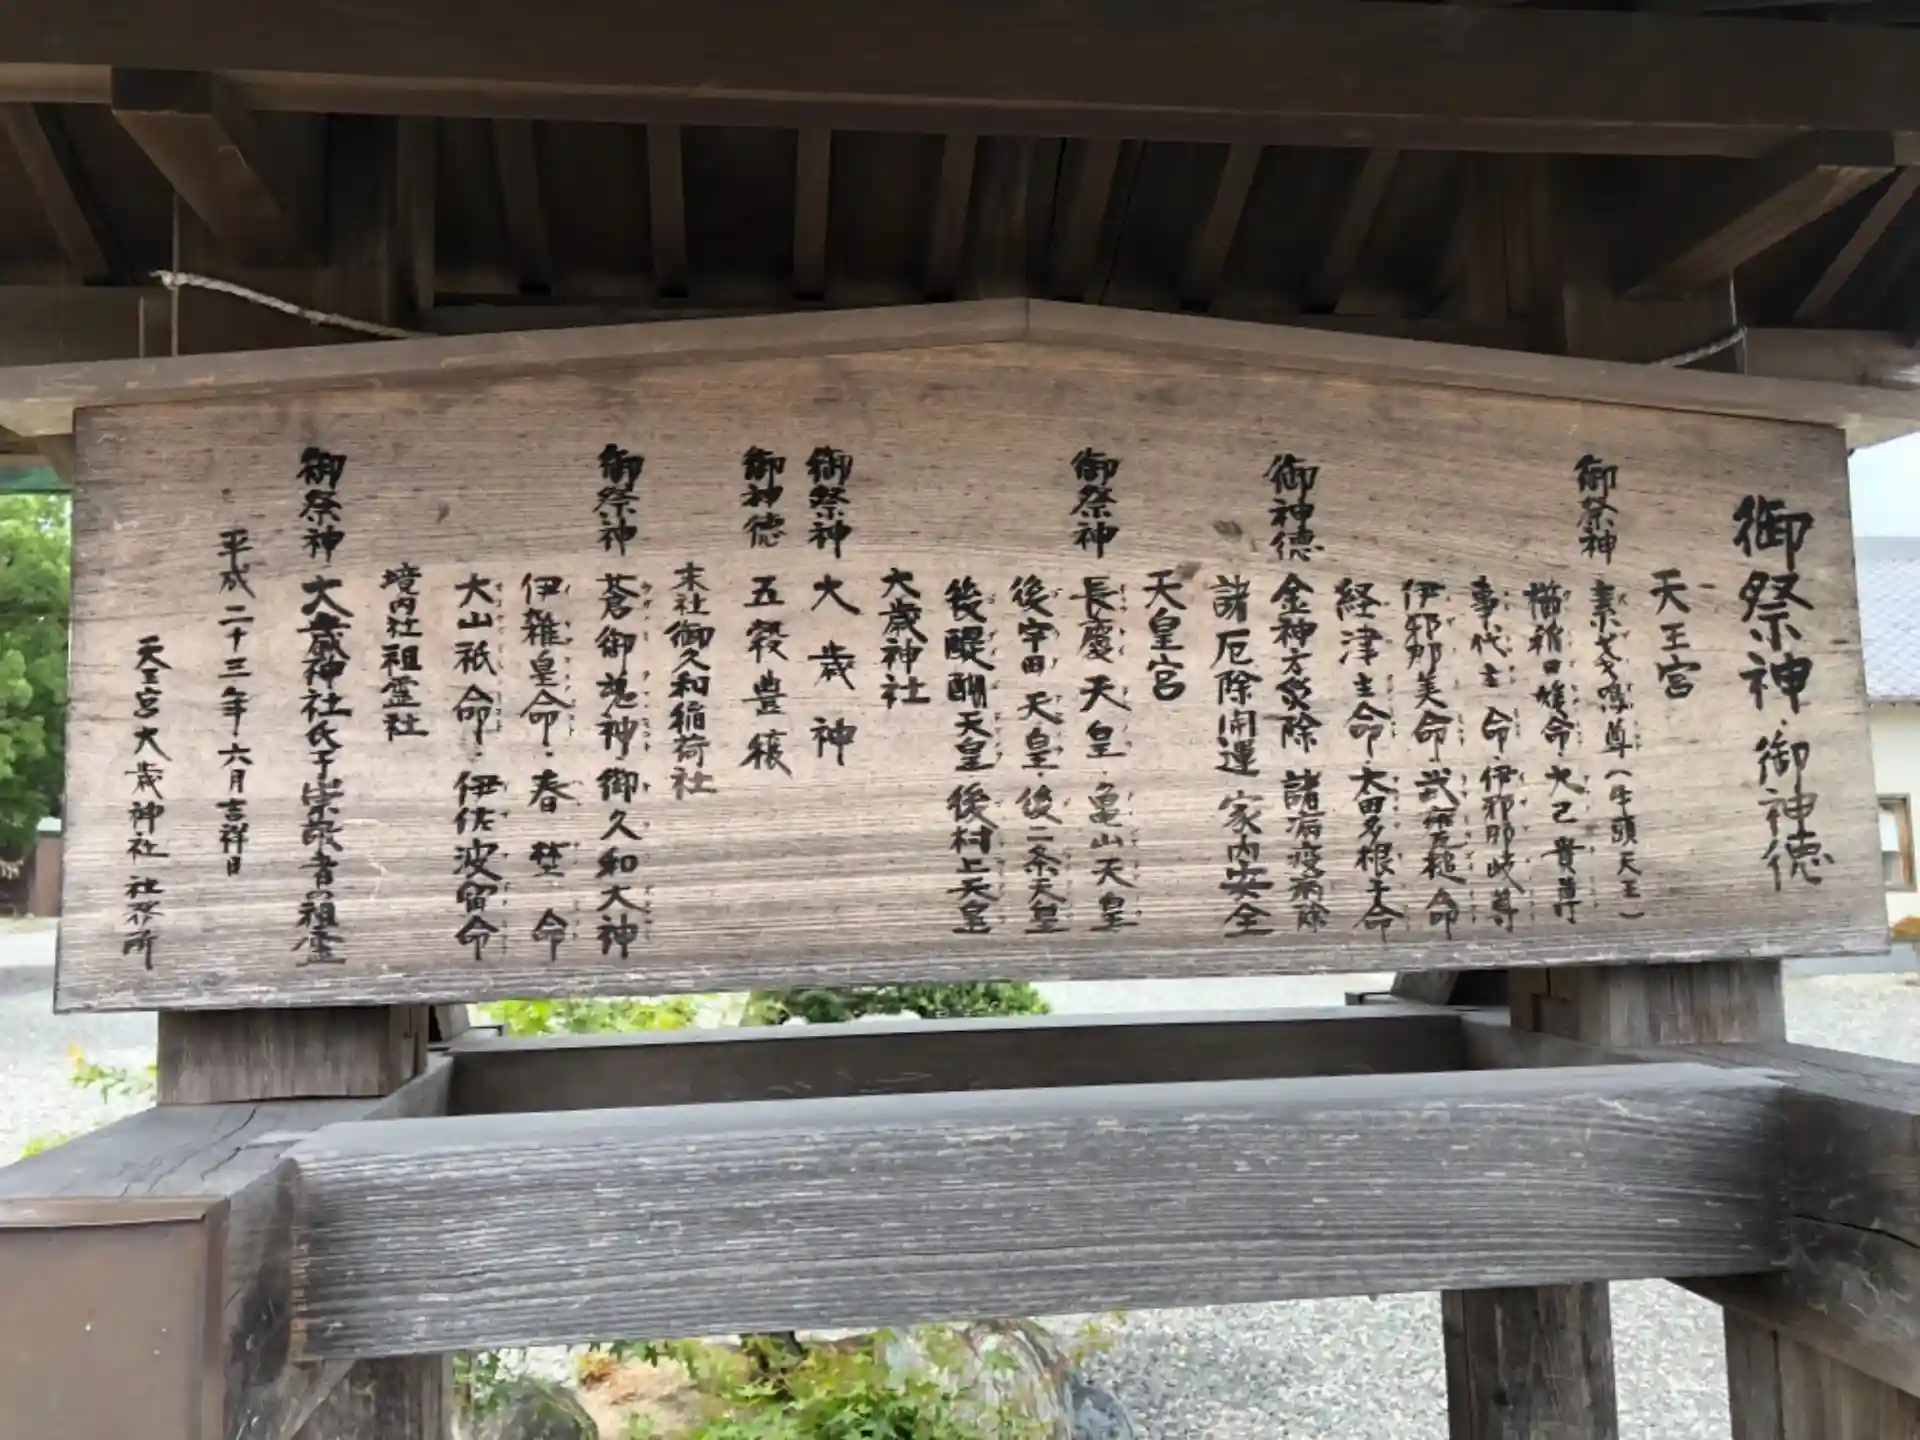 御祭神・御神徳
天王宮
御祭神 素戔嗚尊(牛頭天王)
櫛稲田媛命・大己貴尊
事代主命・伊邪那岐尊
伊邪那美命・武甕槌命
経津主命・太田多根子命
御神徳 金神方災除 諸病疫病除
諸厄除開運 家内安全
天皇宮
御祭神 長慶天皇・亀山天皇
後宇田天皇・後二条天皇
後醍醐天皇 後村上天皇
大歳神社
御祭神 大歳神
御神徳 五穀豊穣
末社御久和稲荷社
御祭神 蒼御魂神・御久和大神
伊雑皇命・春埜命
大山祇命・伊佐波留命
境内社祖霊社
御祭神 大歳神社氏子崇敬者の祖霊
平成二十三年六月吉祥日
天王宮大歳神社 社務所